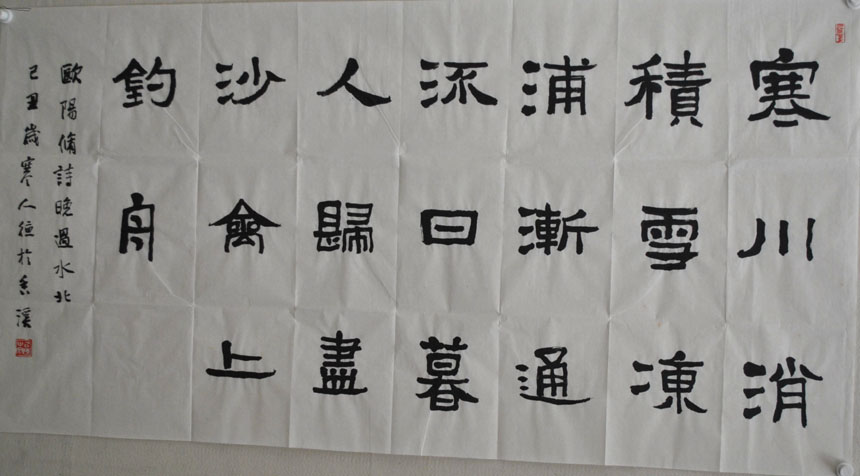 寒川消
積雪凍
浦漸通
流日暮
人歸盡
沙禽上
釣舟
歐陽脩詩晚過水北
己丑歲寒人於香溪